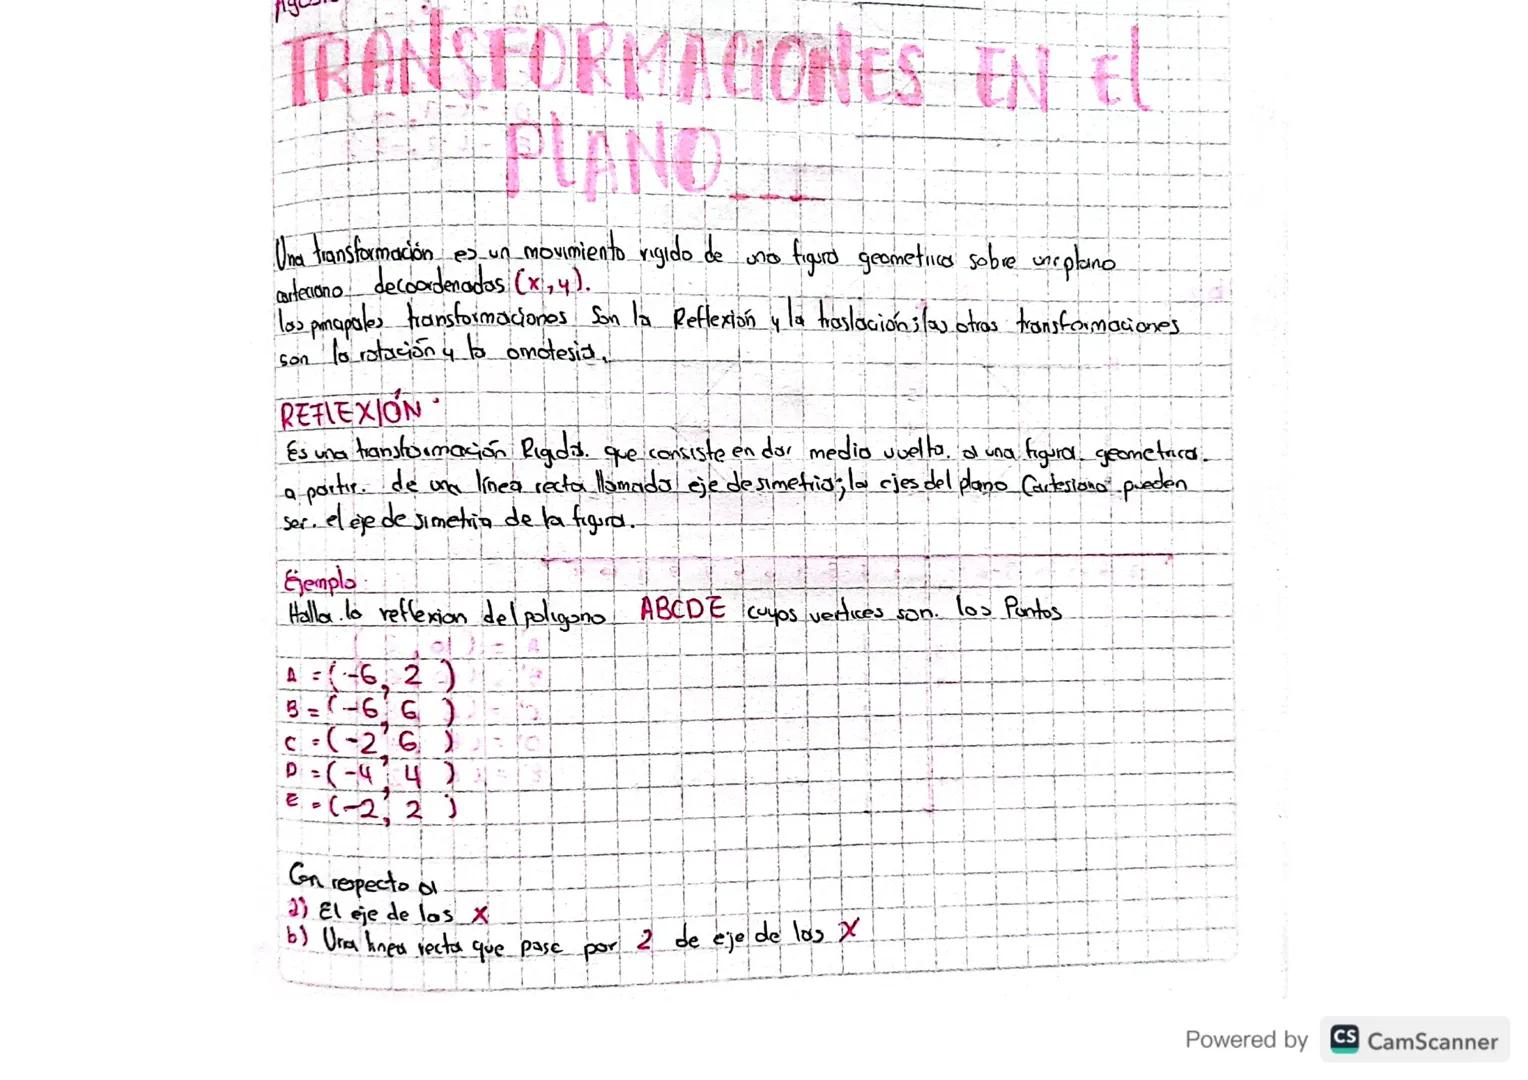 TRANSFORMACIONES EN El
PLANO
Una transformación es un movimiento rigido de una figura geometrica sobre un plano
carteciano decoordenadas (x,y).
las principales transformaciones son la Reflexión y la traslación; las otras transformaciones
son la rotación y la omotesia.
REFLEXIÓN
Es una transformación Rigida. que consiste en dar media vuelta. a una figura. geometrica.
a partir. de una línea recta llamada eje de simetria; los ejes del plano Cartesiano pueden
ser. el eje de simetria de la figura.
Ejemplo
Halla. la reflexion del poligono ABCDE cuyos vertices son. los Puntos
A = (-6, 2 )
B = (-6, 6 )
C = (-2, 6 )
D = (-4, 4 )
E = (-2, 2 )
Con respecto a
a) El eje de las X
b) Una linea recta que pase por 2 de eje de las X
Powered by CS CamScanner